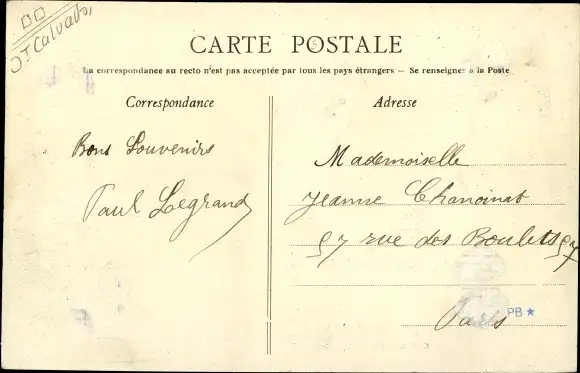 Ot Calvados
CARTE POSTALE
La correspondance au recto n'est pas acceptée par tous les pays étrangers — Se renseigner à la Poste
Correspondance
Bons Souvenirs
Paul Legrand
Adresse
Mademoiselle
Jeanne Chanoinat
57 rue des Boulets 57
Paris
PB ★